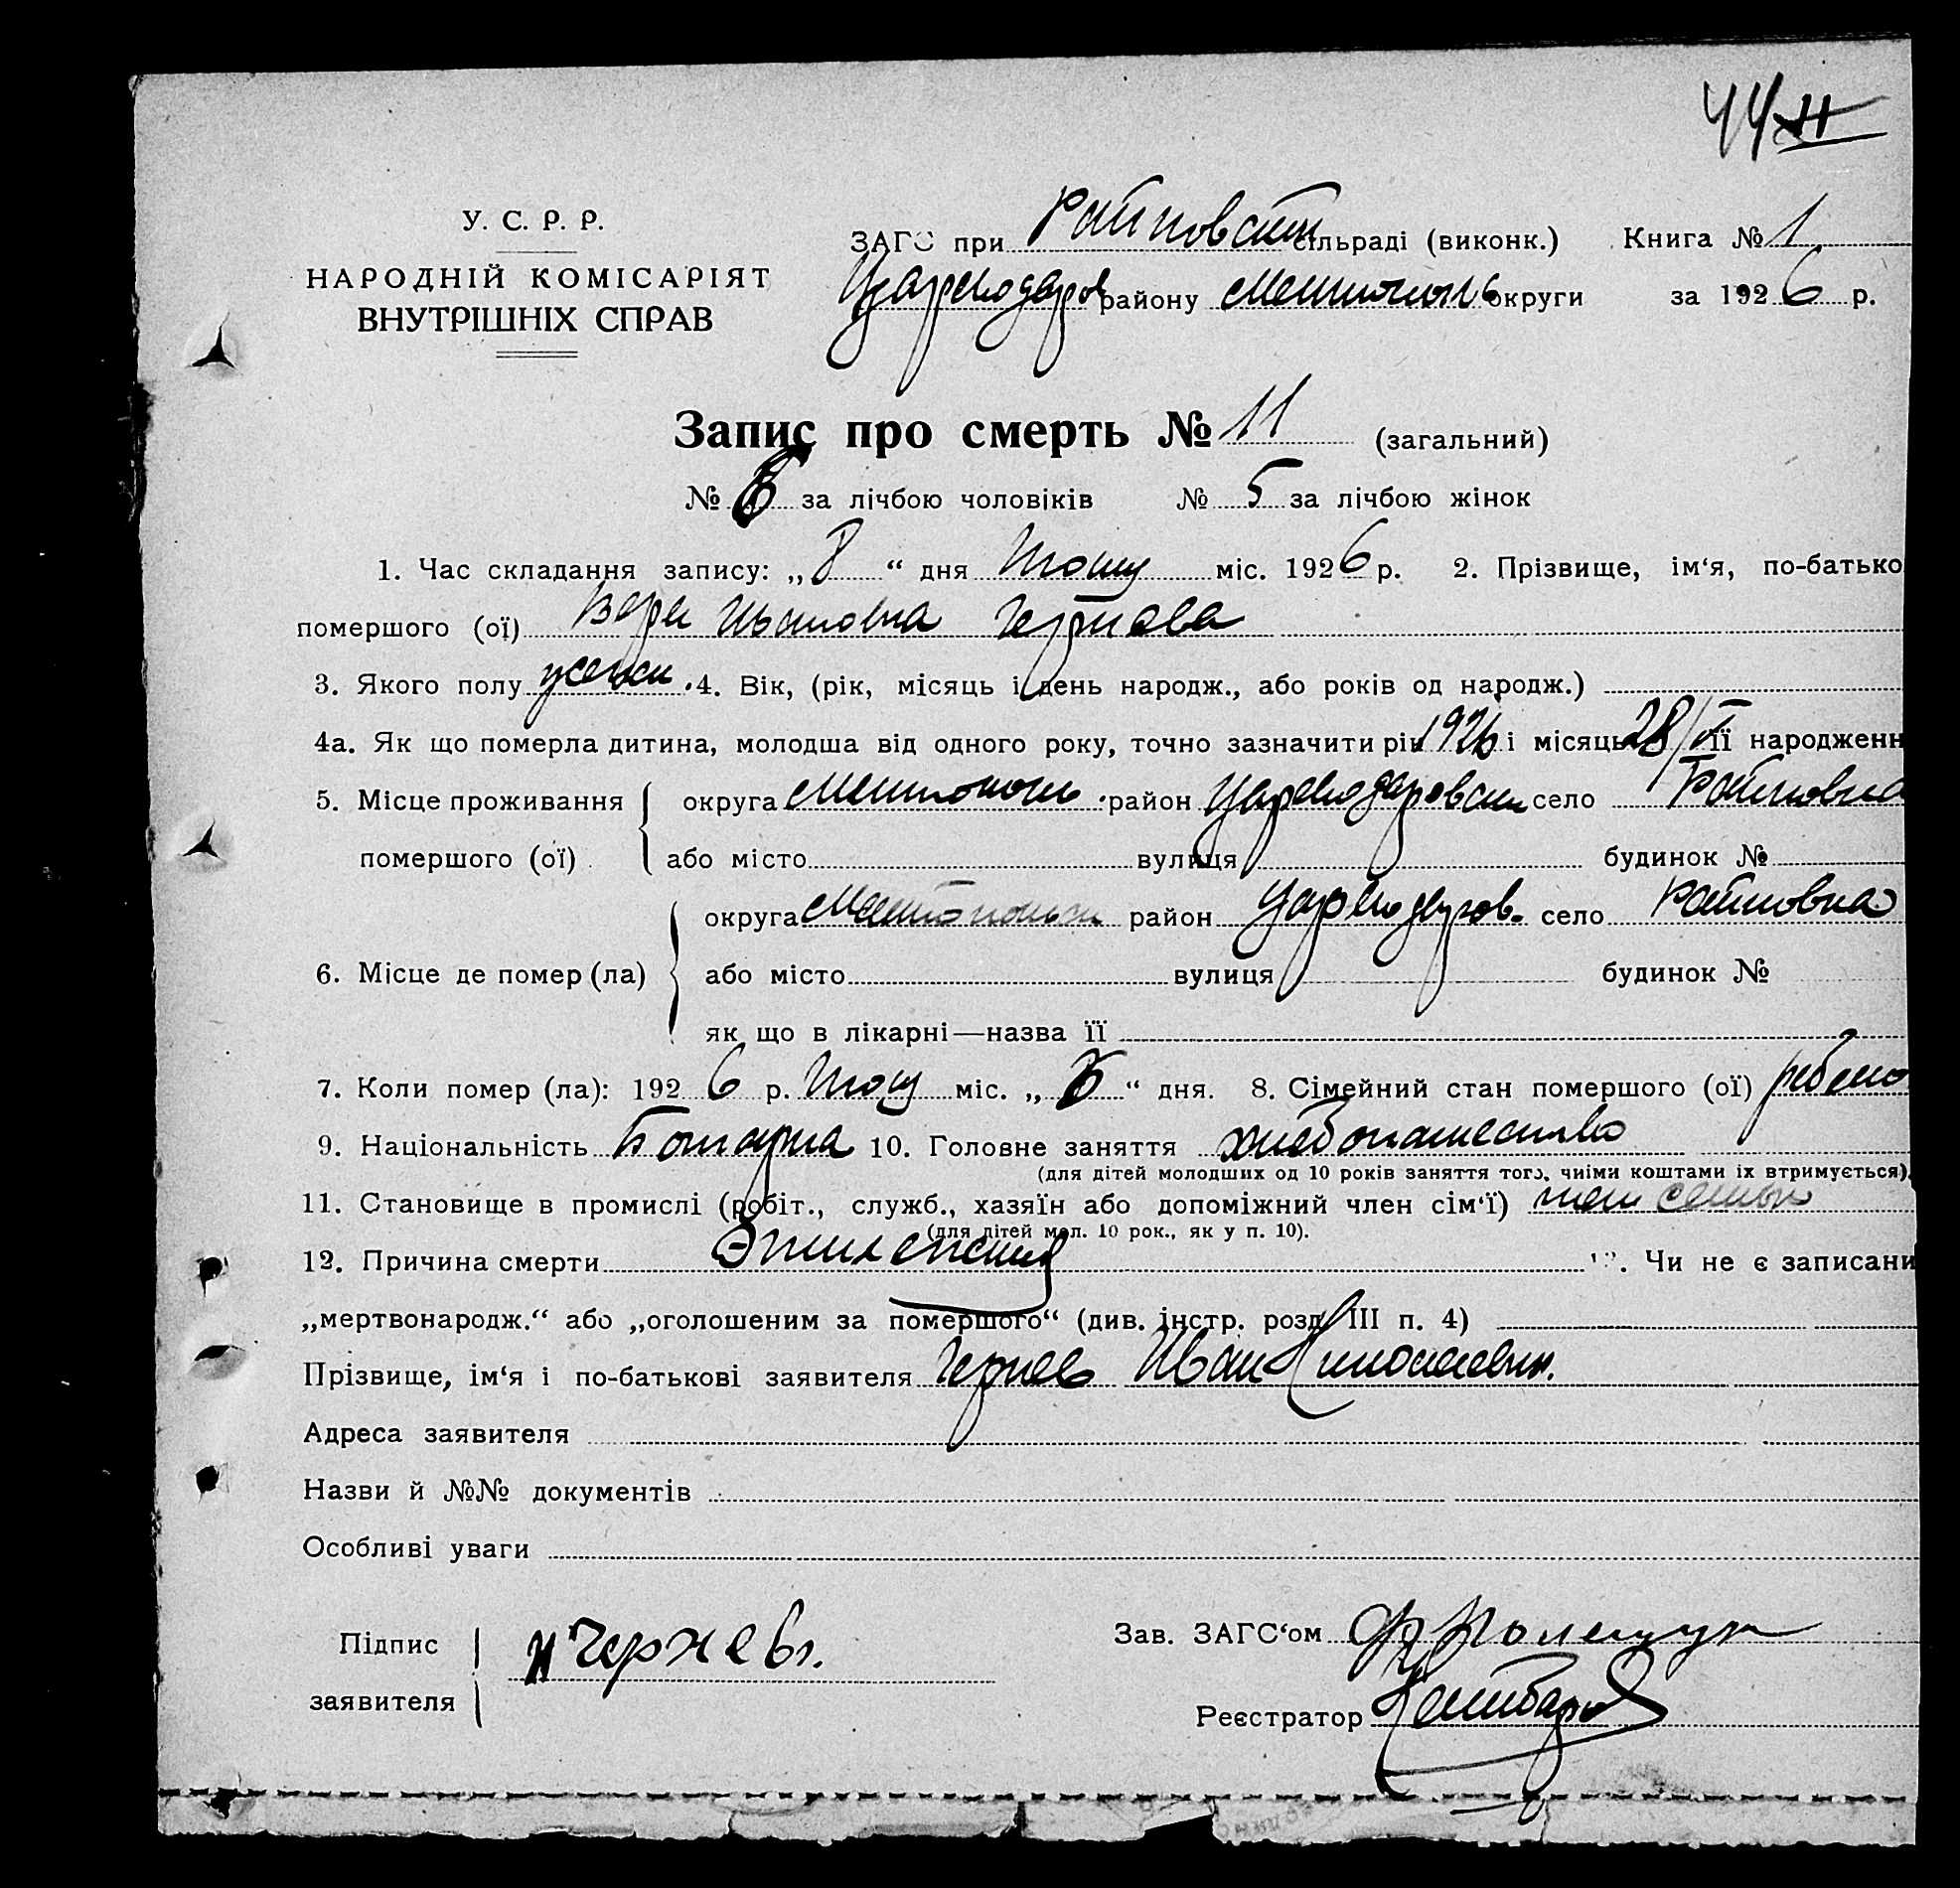 44
У. С. Р. Р.
НАРОДНІЙ КОМІСАРІЯТ
ВНУТРІШНІХ СПРАВ
ЗАГС при Райновском сільраді (виконк.) Книга № 1
Цареводаров району Мелитопол округи за 1926 р.
Запис про смерть № 11 (загальний)
№ за лічбою чоловіків № 5 за лічбою жінок
1. Час складання запису: „8“ дня Июня міс. 1926 р. 2. Прізвище, ім‘я, по-батько
помершого (ої) Вера Ивановна Чернева
3. Якого полу женск. 4. Вік, (рік, місяць і день народж., або років од народж.)
4а. Як що померла дитина, молодша від одного року, точно зазначити рік 1926 і місяць 28/V її народженн
5. Місце проживання округа Мелитополь район Цареводаровский село Райновка
помершого (ої) або місто вулиця будинок №
округа Мелитопольск район Цареводаров. село Райновка
6. Місце де помер (ла) або місто вулиця будинок №
як що в лікарні—назва її
7. Коли помер (ла): 1926 р. Июня міс. „ “ дня. 8. Сімейний стан помершого (ої) ребено
9. Національність Болгарка 10. Головне заняття хлебопашество
(для дітей молодших од 10 років заняття того, чиїми коштами їх втримується).
11. Становище в промислі (робіт., служб., хазяїн або допоміжний член сім‘ї) член семьи
(для дітей мол. 10 рок., як у п. 10).
12. Причина смерти Эпилепсия 13. Чи не є записани
„мертвонародж.“ або „оголошеним за помершого“ (див. інстр. розд. III п. 4)
Прізвище, ім‘я і по-батькові заявителя Чернев Иван Николаевич.
Адреса заявителя
Назви й №№ документів
Особливі уваги
Підпис И Чернев. Зав. ЗАГС‘ом Полещук
заявителя
Реєстратор